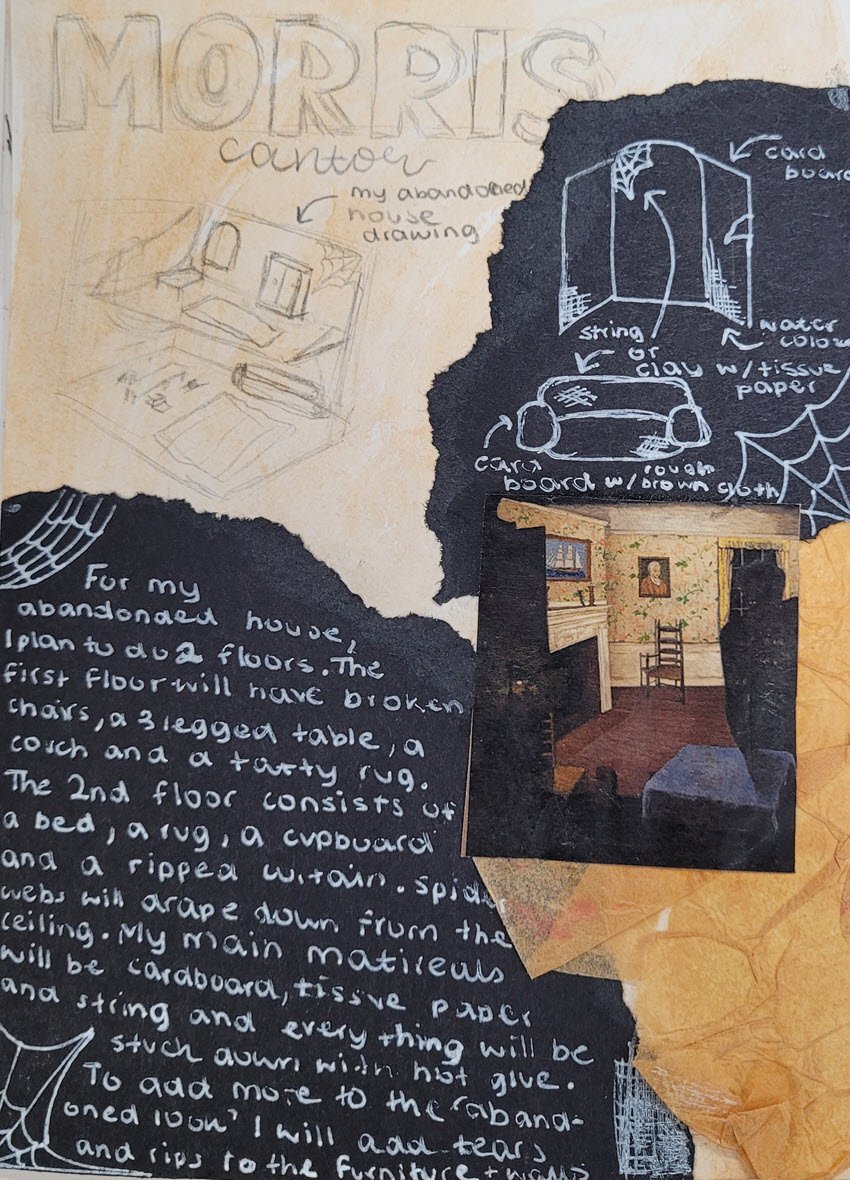 MORRIS
cantor
my abandobed
house
drawing
card
board
string
or
clay w/tissue
paper
water
color
card
board w/ brown cloth
rough
For my
abandonded house,
I plan to do 2 floors. The
first floor will have broken
chairs, a 3 legged table, a
couch and a tatty rug.
The 2nd floor consists of
a bed, a rug, a cupboard
and a ripped curtain. spider
webs will drape down from the
ceiling. My main matireals
will be cardboard, tissue paper
and string and every thing will be
stuck down with hot glue.
To add more to the "aband-
oned look" I will add tears
and rips to the furniture + walls